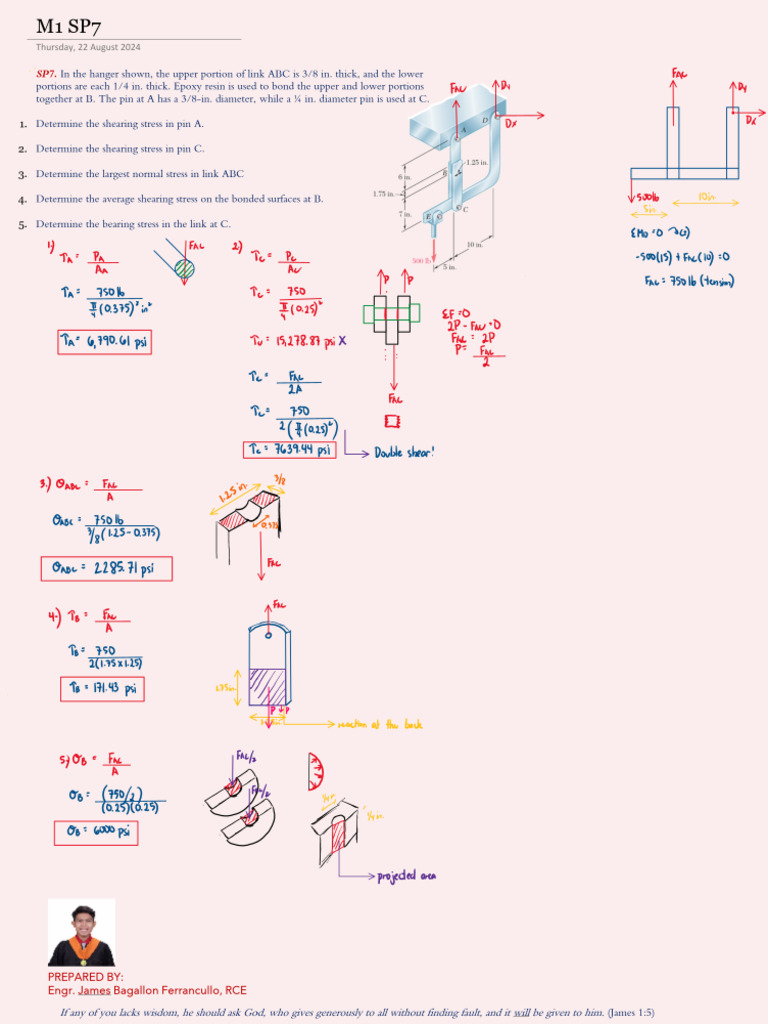 M1 SP7
Thursday, 22 August 2024
SP7. In the hanger shown, the upper portion of link ABC is 3/8 in. thick, and the lower
portions are each 1/4 in. thick. Epoxy resin is used to bond the upper and lower portions
together at B. The pin at A has a 3/8-in. diameter, while a ¼ in. diameter pin is used at C.
1. Determine the shearing stress in pin A.
2. Determine the shearing stress in pin C.
3. Determine the largest normal stress in link ABC
4. Determine the average shearing stress on the bonded surfaces at B.
5. Determine the bearing stress in the link at C.
FAC
Dy
Dx
D
A
1.25 in.
B
6 in.
1.75 in.
7 in.
E
C
10 in.
500 lb
5 in.
FAC
Dy
Dx
500lb
5in.
10in.
ΣMD=0
-500(15) + FAC(10) =0
FAC = 750 lb (tension)
1)
τA = PA
AA
τA = 750 lb
π/4 (0.375)² in²
τA = 6,790.61 psi
FAC
2)
τC = PC
AC
τC = 750
π/4 (0.25)²
τC = 15,278.87 psi X
τC = FAC
2A
τC = 750
2(π/4 (0.25)²)
τC = 7639.44 psi
Double shear!
P P
FAC
ΣF=0
2P - FAC=0
FAC = 2P
P= FAC
2
3.) σABC = FAC
A
σABC = 750 lb
3/8 (1.25 - 0.375)
σABC = 2285.71 psi
1.25 in.
3/8
0.375
FAC
4.) τB = FAC
A
τB = 750
2(1.75x1.25)
τB = 171.43 psi
FAC
1.75in.
P P
reaction at the back
5.) σB = FAC
A
σB = (750/2)
(0.25)(0.25)
σB = 6000 psi
FAC/2
FAC/2
1/4 in.
1/4 in.
projected area
PREPARED BY:
Engr. James Bagallon Ferrancullo, RCE
If any of you lacks wisdom, he should ask God, who gives generously to all without finding fault, and it will be given to him. (James 1:5)